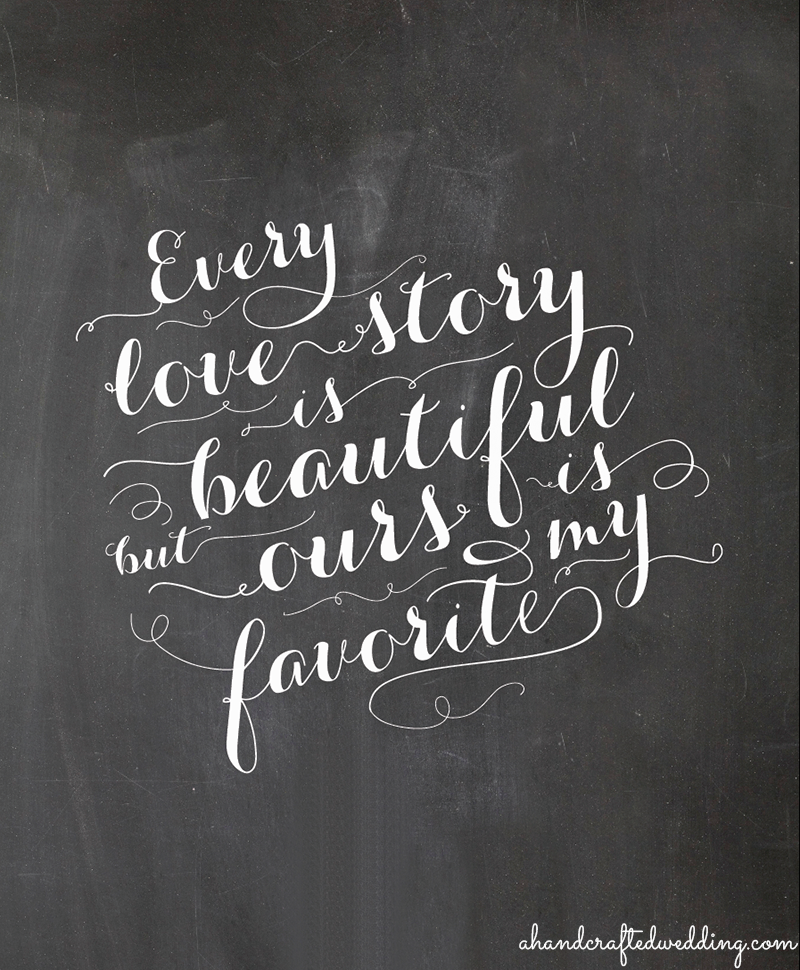 Every
love story
is
beautiful
but ours is
my
favorite
ahandcraftedwedding.com